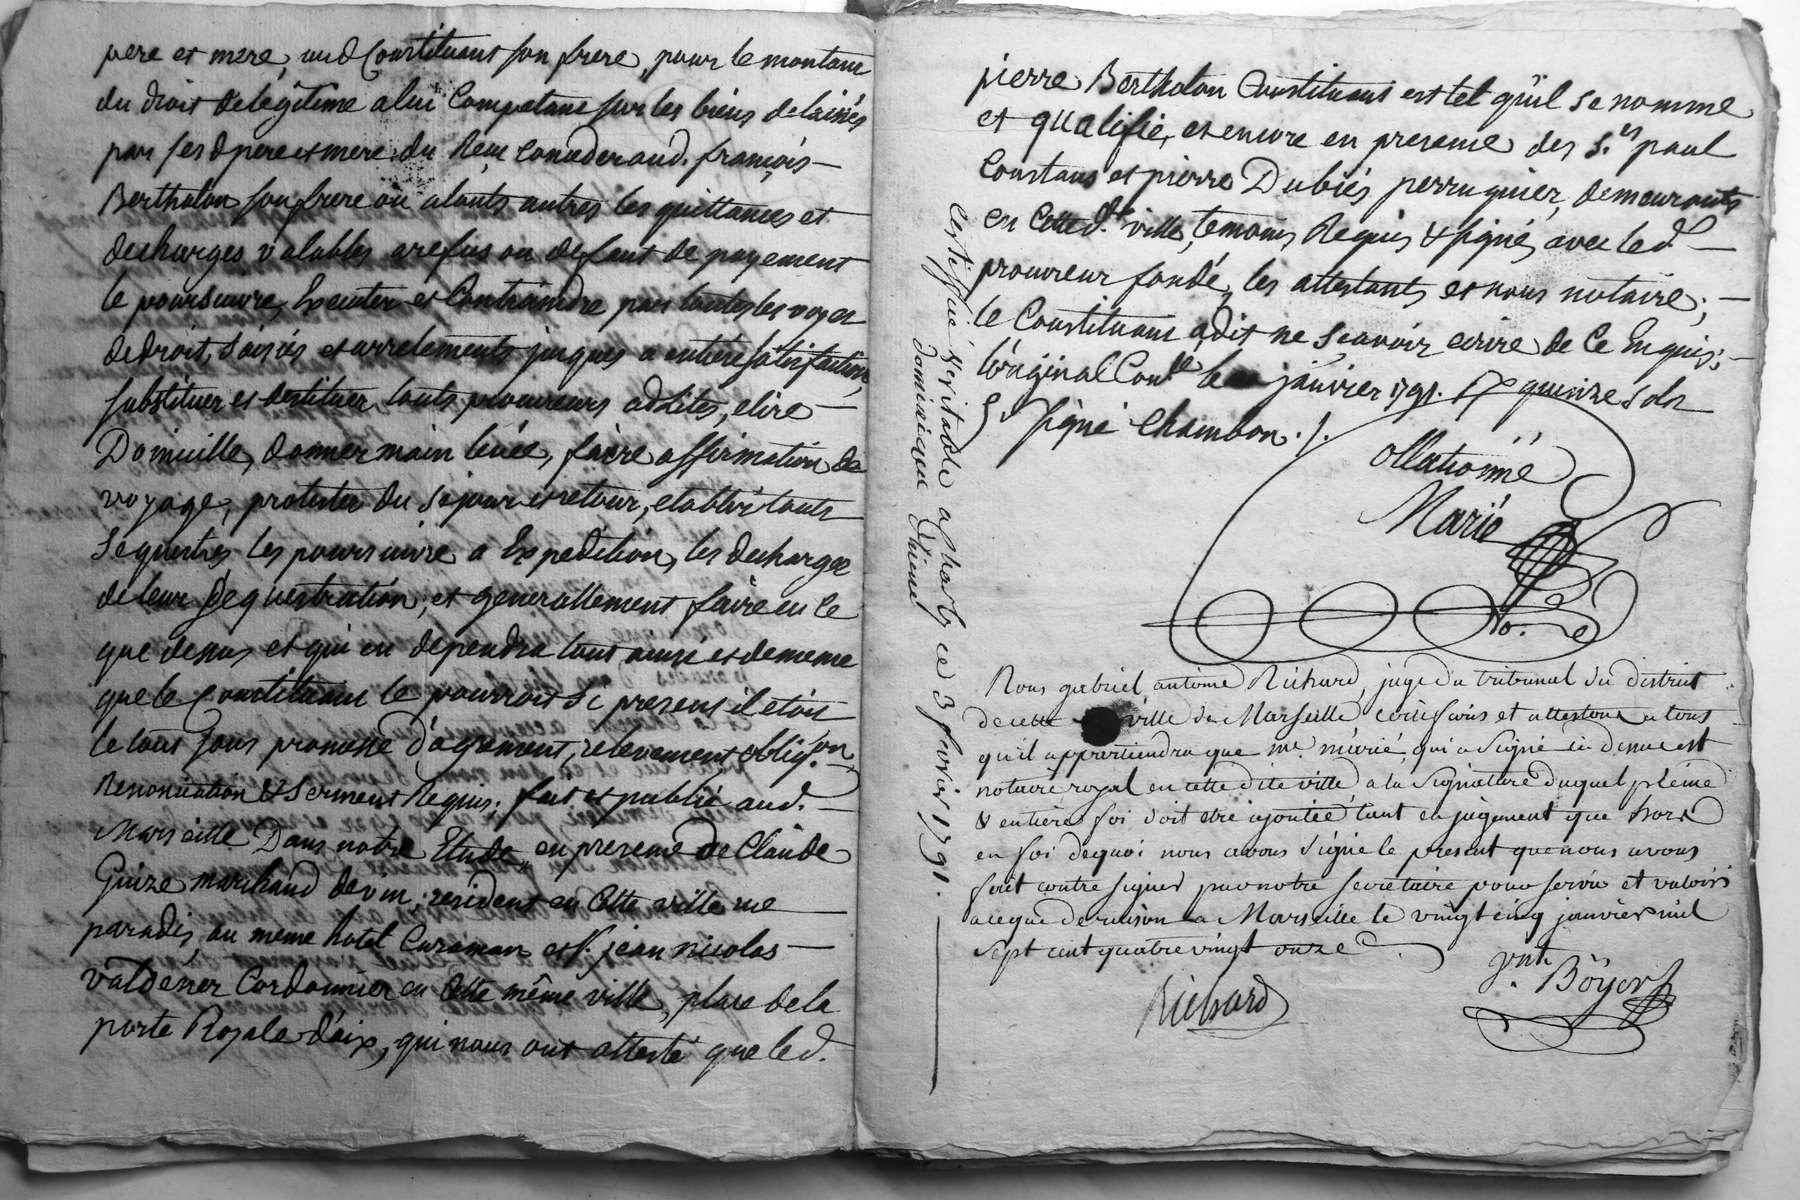 pere et mere, aud Constituant son frere, pour le montant
du droit de legitime a lui Competant sur les biens delaissés
par sesd pere et mere. du Recu Conceder aud. françois
Berthalon son frere ou a touts autres les quittances et
decharges valables a refus ou deffaut de payement
le poursuivre, Executer et Contraindre par toutes les voyes
de droit, saisies et arretements jusques a entiere satisfaction,
substituer et destituer touts procureurs adlites, elire
Domicille, donner main levée, faire affirmation de
voyage, protester du sejour et retour, etablir touts
sequestres les poursuivre a Expedition, les decharger
de leur Sequestration, et generallement faire en ce
que dessus et qui en dependra tout ainsi et de meme
que le Constituant le pourroit si present il etoit
le tout sous promesse d'agrement, relevement, oblig.on
Renonciation & Serment Requis; fait et publié aud.
Marseille Dans notre Etude, en presence de Claude
Guize marchand de vin, resident en Cette ville rue
paradis, au meme hotel Caraman et Sr. jean nicolas
valdener Cordonnier en Cette même ville, place de la
porte Royale d'aix, qui nous ont attesté que led.
pierre Berthalon Constituant est tel qu'il se nomme
et qualifie, et encore en presence des S.rs paul
Constans et pierre Dubiés perruquier, demeurants
en Cetted.te ville, temoins Requis & signés avec led
procureur fondé, les attestants et nous notaire;
le Constituant a dit ne Scavoir ecrire de Ce Enquis;
l'original Con.lé le janvier 1791. R quinze sols
signé Chambon ./.
Collationné
Marié
no.
Certiffié Veritable a Charly ce 3 fevrier 1791.
Dominique Thiend
Nous gabriel antoine Richard, juge du tribunal du district
de cette ville de Marseille certifions et attestons a tous
qu'il appartiendra que me marié, qui a signé ci dessus est
notaire royal en cette dite ville a la signature duquel pleine
& entiere foi doit etre ajoutée tant en jugement que hors
en foi dequoi nous avons signé le present que nous avons
fait contre signer par notre secretaire pour servir et valoir
a ce que de raison a Marseille le vingt cinq janvier mil
sept cent quatre vingt onze
Richard
Böyer